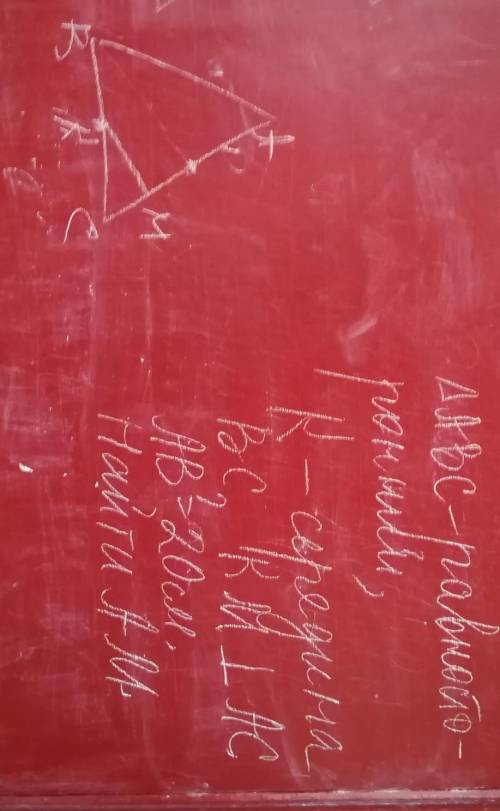 ΔABC - равносто-
ронний,
K - середина
BC, KM ⊥ AC
AB = 20см.
Найти AM.
A
B
C
K
M